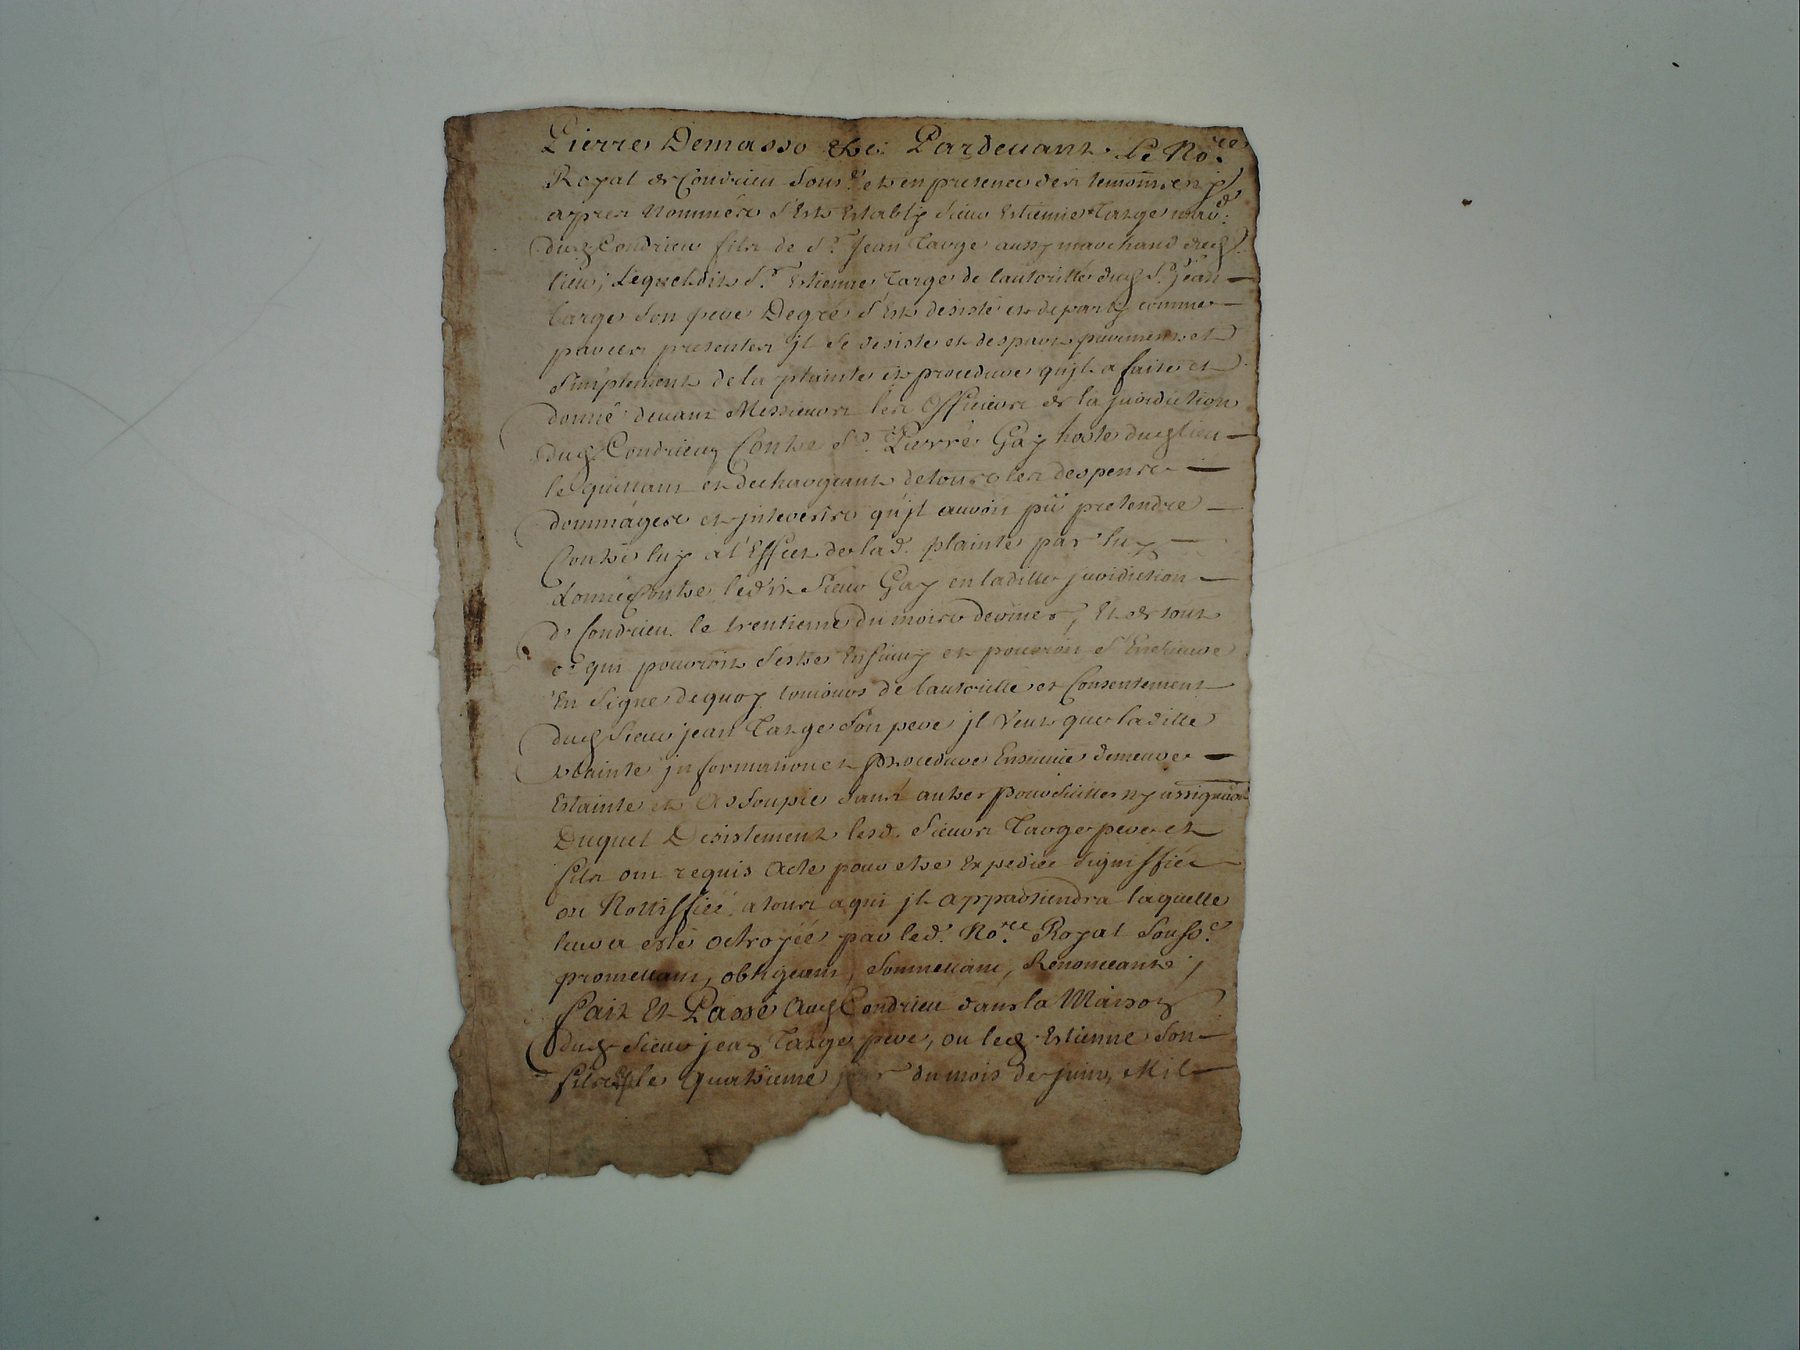 Pierre Demasso &c: Pardevant Le No.re
Royal de Condrieu Sous.é et en presence des temoins
apres Nommés s'Est Estably Sieur Estienne Targe mar.d
dud Condrieu fils de S.r Jean Targe aussy marchand dud
lieu; Lequel dit S.r Estienne Targe de lautoritté dud S.r Jean
Targe Son pere Degré s'Est desisté et departy comme
par ces presentes jl Se desiste et despart purement et
Simplement de la plainte et procedure qu'jl a faite et
donné devant Messieurs les Officiers de la juridiction
dud Condrieu Contre S.r Pierre Gay hoste dud lieu
le quittant et dechargeant de tous les despens
dommages et jnterests qu'jl auroit pü pretendre
Contre luy a l'Effect de lad. plainte par luy
donné Contre ledit Sieur Gay en laditte juridiction
de Condrieu le trentieme du mois dernier, Et de tout
ce qui pourroit s'estre Ensuivy et pourroit s'Ensuivre
En Signe dequoy toujours de lautoritté et Consentement
dud Sieur jean Targe Son pere jl Veut que laditte
plainte jnformation et procedure Ensuivie demeure
Estainte et Assoupie sans autre poursuitte ny assignation
Duquel Desistement lesd. Sieurs Targe pere et
fils ont requis Acte pour estre Expediée Signiffiée
ou Nottiffiée a tous a qui jl appartiendra laquelle
leur a esté octroyée par led. No.re Royal Sous.é
promettant, obligeant, Soumettant, Renonceant;
Fait Et Passé Aud Condrieu dans la Maison
dud Sieur jean Targe pere, ou led Estienne Son
fils le quatrieme jour du mois de juin, Mil